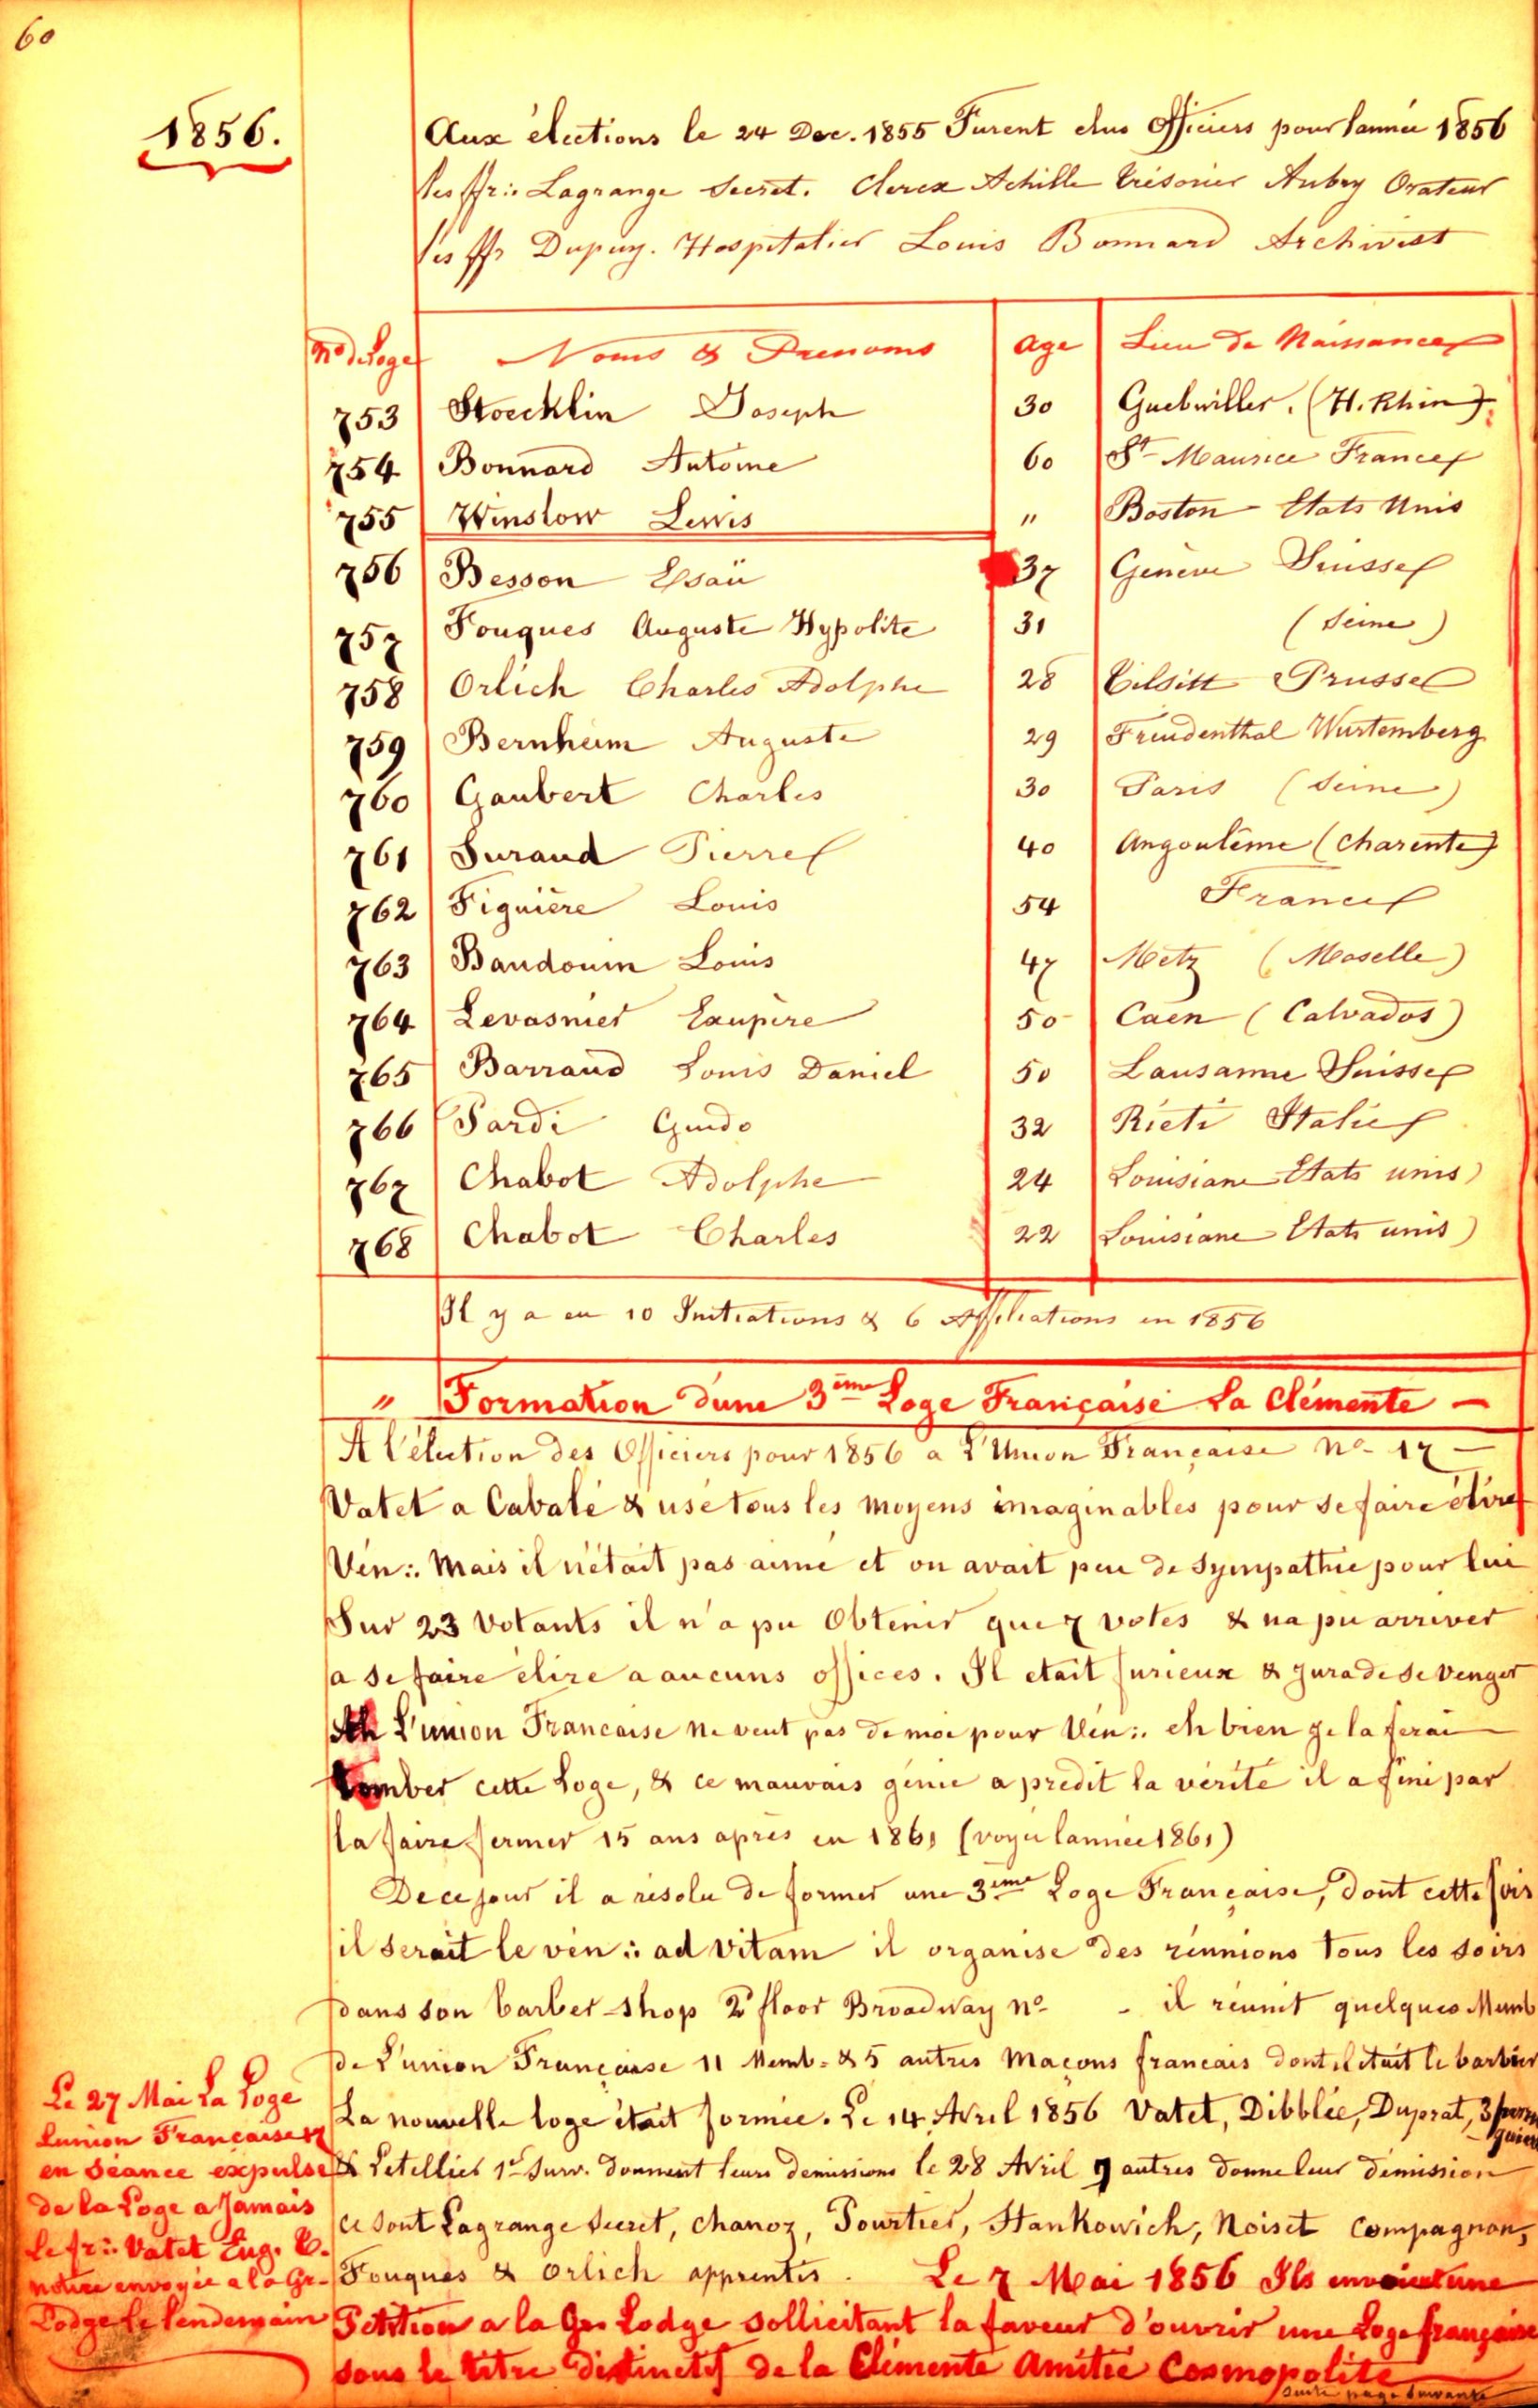 60
1856.
Aux élections le 24 Dec. 1855 Furent elus Officiers pour lannée 1856
les ffr∴ Lagrange Secret. Clerex Achille trésorier Aubry Orateur
les ffr Dupuy. Hospitalier Louis Bonnard Archivist
No de Loge Noms & Prenoms Age Lieu de Naissance
753 Stoecklin Joseph 30 Guebwiller. (H. Rhin)
754 Bonnard Antoine 60 St Maurice France
755 Winslow Lewis " Boston Etats Unis
756 Besson Esaü 37 Genève Suisse
757 Fouques Auguste Hypolite 31 (Seine)
758 Orlich Charles Adolphe 28 Tilsitt Prusse
759 Bernheim Auguste 29 Freudenthal Wurtemberg
760 Gaubert Charles 30 Paris (Seine)
761 Suraud Pierre 40 Angoulême (Charente)
762 Figuière Louis 54 France
763 Baudouin Louis 47 Metz (Moselle)
764 Levasnier Exupère 50 Caen (Calvados)
765 Barraud Louis Daniel 50 Lausanne Suisse
766 Pardi Guido 32 Rieti Italie
767 Chabot Adolphe 24 Louisiane Etats unis)
768 Chabot Charles 22 Louisiane Etats unis)
Il y a eu 10 Initiations & 6 Affiliations en 1856
" Formation d'une 3ème Loge Française La Clémente —
A l'élection des Officiers pour 1856 a L'Union Française No 17 —
Vatet a Cabalé & usé tous les moyens imaginables pour se faire élire
Vén∴ Mais il n'était pas aimé et on avait peu de sympathie pour lui
Sur 23 Votants il n'a pu Obtenir que 7 votes & na pu arriver
a se faire élire a aucuns offices. Il etait furieux & jura de se venger
Ah L'union Francaise ne veut pas de moi pour Vén∴ eh bien je la ferai
tomber cette Loge, & ce mauvais génie a predit la vérité il a fini par
la faire fermer 15 ans après en 1861 (voyez lannée 1861)
De ce jour il a résolu de former une 3ème Loge Française, dont cette fois
il serait le vén∴ ad vitam il organise des réunions tous les soirs
dans son barber-shop 2d floor Broadway No - il réunit quelques Memb
de L'union Française 11 Memb. & 5 autres Maçons francais dont il était le barbier
La nouvelle loge était formée. Le 14 Avril 1856 Vatet, Dibblée, Duprat,
& Letellier 1er Surv. donnent leurs demissions le 28 Avril 7 autres donne leur démission
ce sont Lagrange Secret, Chanoz, Pourtier, Stankowich, Noiset Compagnon,
Fouques & Orlich apprentis. Le 7 Mai 1856 Ils envoient une
Pétition a la Gr. Lodge sollicitant la faveur d'ouvrir une Loge française
sous le titre distinctif de la Clémente Amitié Cosmopolite
suite page suivante
Le 27 Mai La Loge
Lunion Française 17
en séance expulse
de la Loge a Jamais
Le fr∴ Vatet Eug. C.
notice envoyée a la Gr.
Lodge le lendemain